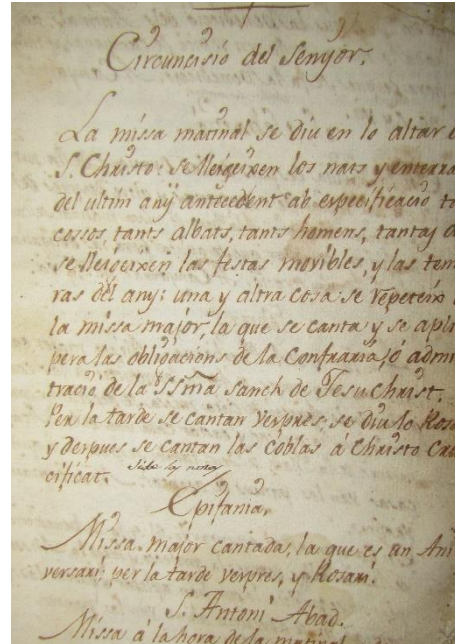 Circuncisió del Senyor.
La missa matinal se diu en lo altar
S. Christo: se lleigeixen los nats y enterra
del ultim any antecedent ab especificació
cossos, tants albats, tants homens, tantas
se lleigeixen las festas movibles, y las tem
ras del any: una y altra cosa se repeteix
la missa major, la que se canta y se apli
pera las obligacions de la Confraria, ó admi
tració de la SSma Sanch de Jesuchrist.
Per la tarde se cantan Vespres, se diu lo Rosa
y despues se cantan las Coblas á Christo Cru
cificat.
Epifania.
Missa major cantada, la que es un Ani
versari; per la tarde vespres, y Rosari.
S. Antoni Abad.
Missa á la hora de la matinal